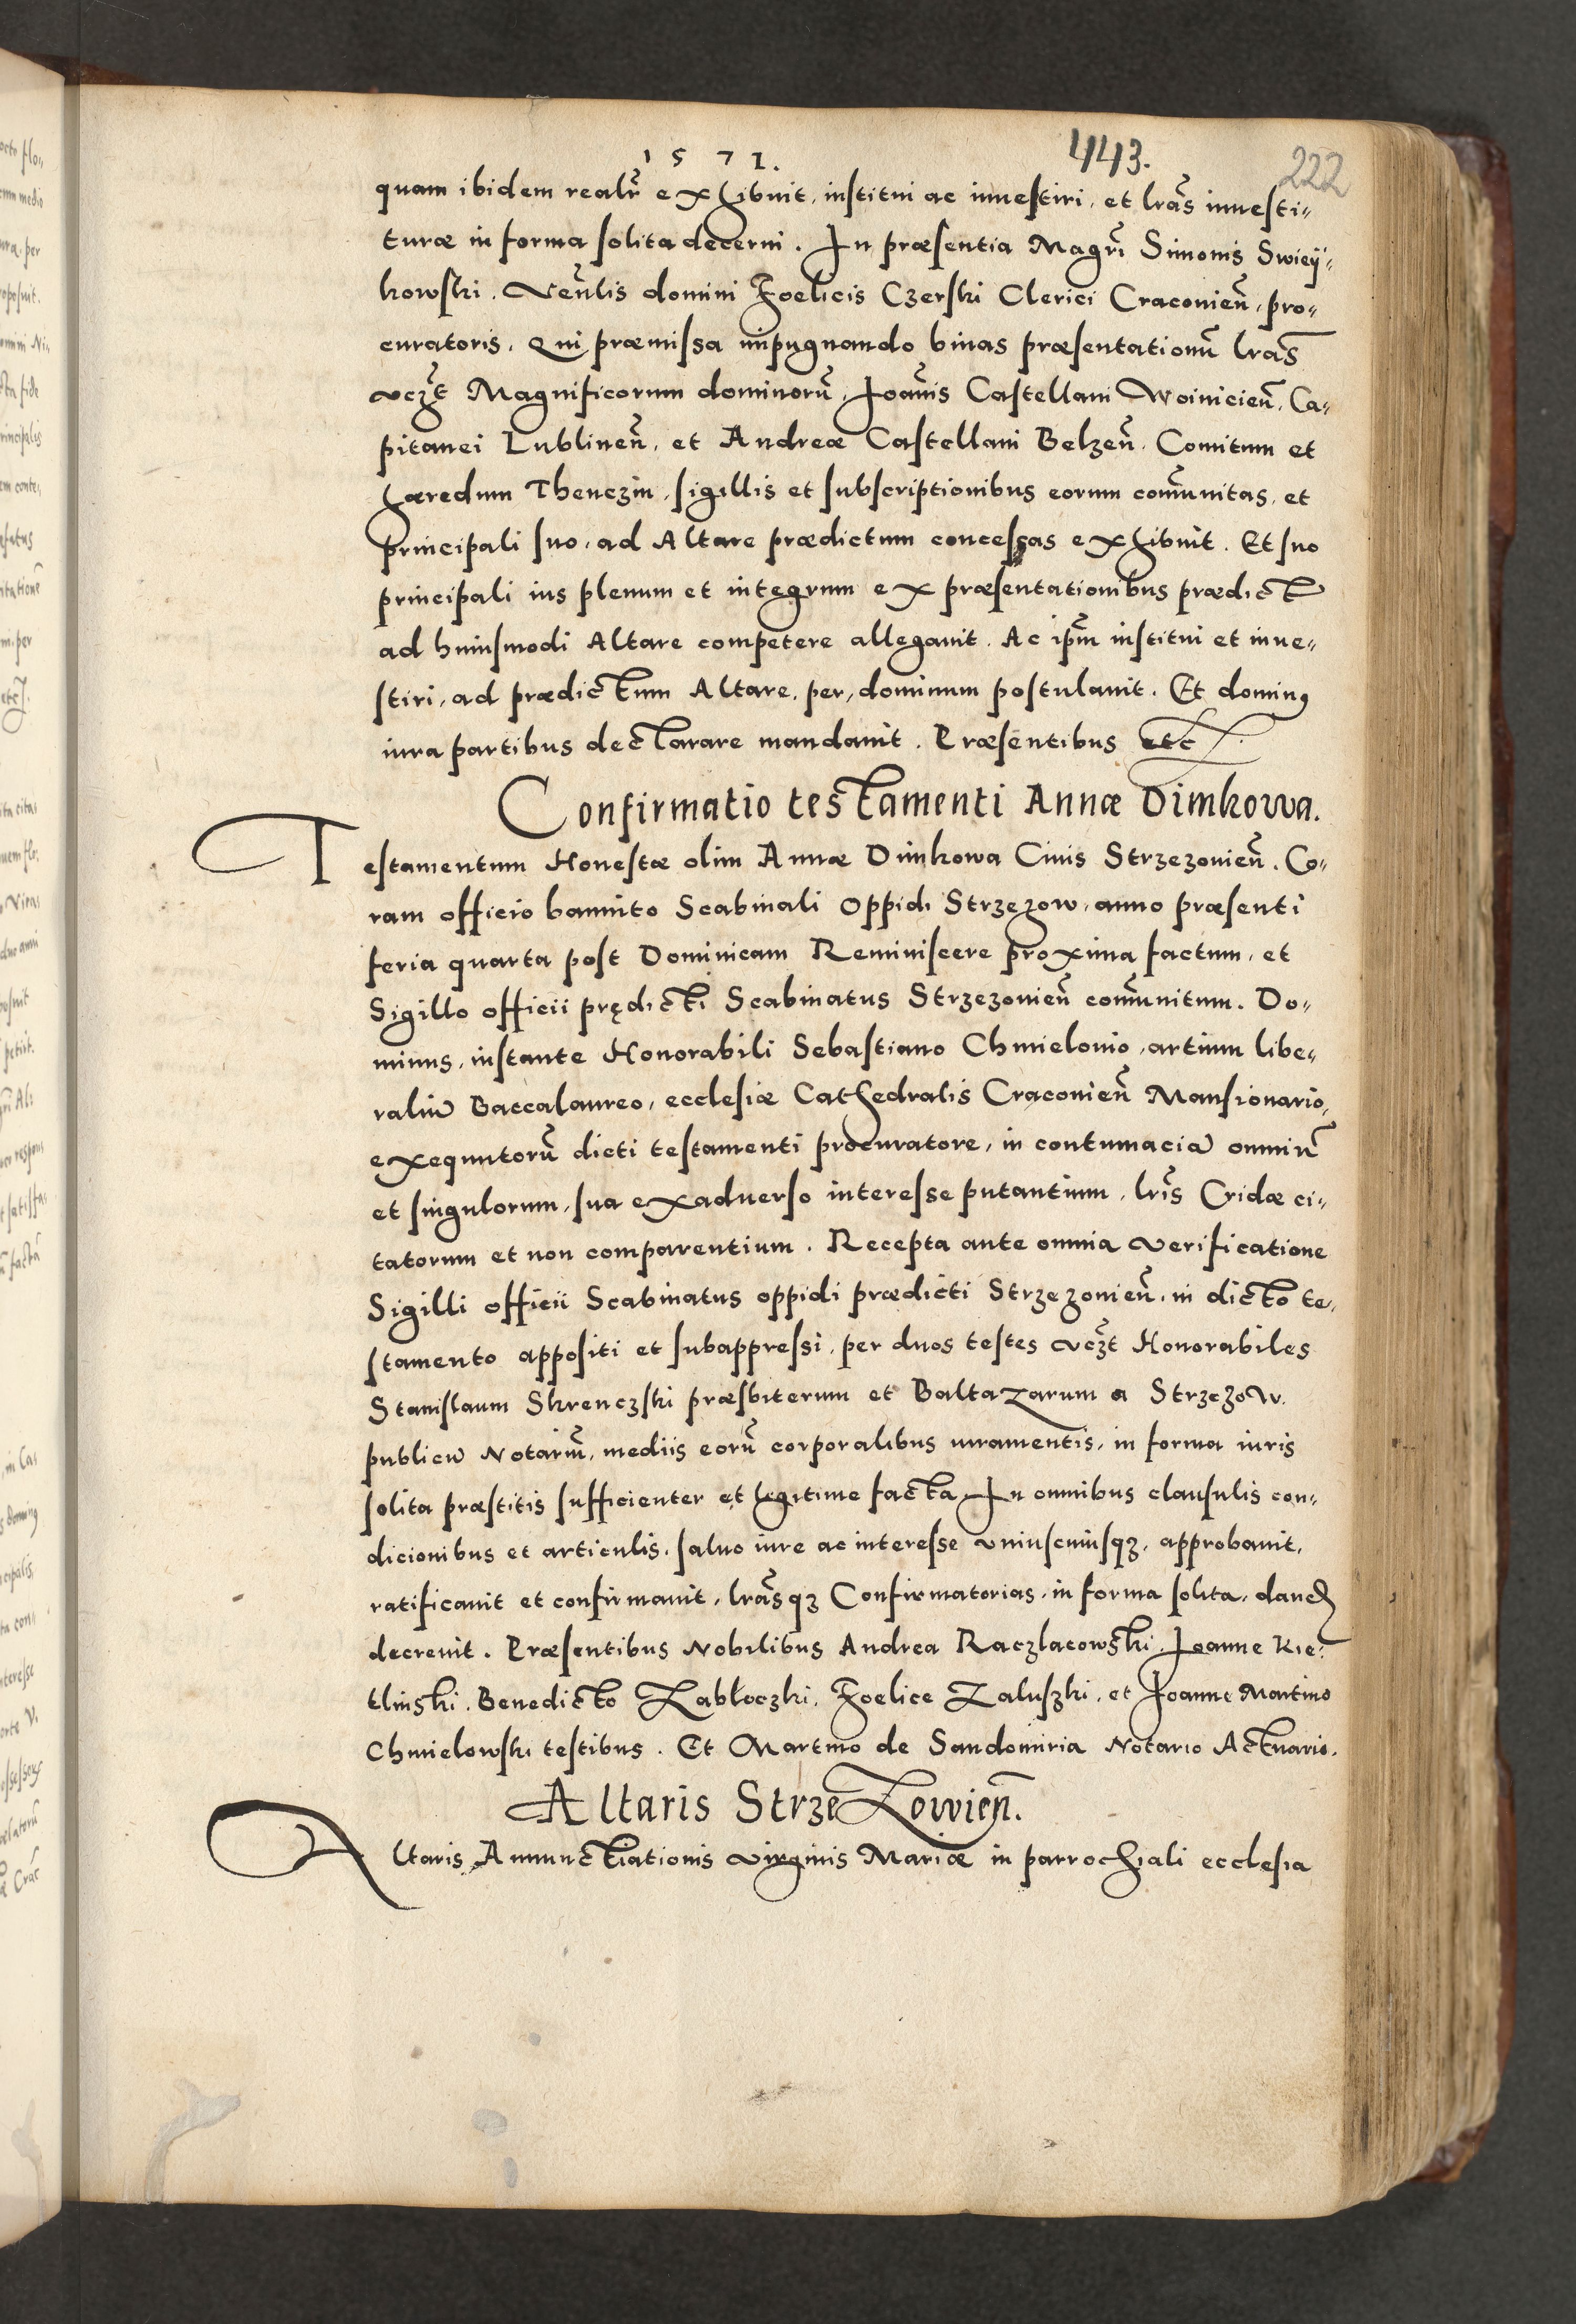 1571.
443.
222
quam ibidem realr̃ exhibuit, institui ac inuestiri, et lrãs inuesti„
turæ in forma solita decerni. In præsentia Magrĩ Simonis Swiey„
kowski. Veñlis domini Foelicis Czerski Clerici Cracouieñ, pro„
curatoris. Qui præmissa impugnando binas præsentationũ lrãs
vczt̃ Magnificorum dominorũ, Ioãnis Castellani Woinicieñ, Ca„
pitanei Lublineñ, et Andreæ Castellani Belzeñ. Comitum et
hæredum Thenczin, sigillis et subscriptionibus eorum com̃unitas, et
principali suo, ad Altare prædictum concessas exhibuit. Et suo
principali ius plenum et integrum ex præsentationibus prædict
ad huiusmodi Altare competere allegauit. Ac ip̃m institui et inue„
stiri, ad prædictum Altare, per, dominum postulauit. Et dominꝰ
iura partibus declarare mandauit. Præsentibus etc
Confirmatio testamenti Annæ Dimkowa.
Testamentum Honestæ olim Annæ Dimkowa Ciuis Strzezouieñ. Co„
ram officio bannito Scabinali Oppidi Strzezow, anno præsenti
feria quarta post Dominicam Reminiscere proxima factum, et
Sigillo officii prędicti Scabinatus Strzezouieñ com̃unitum. Do„
minus, instante Honorabili Sebastiano Chmielouio, artium libe„
raliũ Baccalaureo, ecclesiæ Cathedralis Cracouieñ Mansionario,
exequutorũ dicti testamenti procuratore, in contumaciã omniũ
et singulorum, sua exaduerso interesse putantium, lrĩs Cridæ ci„
tatorum et non comparentium. Recepta ante omnia verificatione
Sigilli officii Scabinatus oppidi prædicti Strzezouieñ, in dicto te„
stamento appositi et subappressi, per duos testes vczt̃ Honorabiles
Stanislaum Skrenczski præsbiterum et Baltazarum a Strzezow.
publicũ Notariũ, mediis eorũ corporalibus iuramentis, in forma iuris
solita præstitis sufficienter et legitime facta In omnibus clausulis con„
dicionibus et articulis, saluo iure ac interesse vniuscuiusqꝫ, approbauit,
ratificauit et confirmauit, lrãsqꝫ Confirmatorias, in forma solita, dand
decreuit. Præsentibus Nobilibus Andrea Raczlacowski, Ioanne Kie„
tlinski, Benedicto Zabłoczki, Foelice Zaluszki, et Ioanne Martino
Chmielowski testibus. Et Martino de Sandomiria Notario Actuario.
Altaris Strzezowieñ.
Altaris Annunctiationis virginis Mariæ in parrochiali ecclesia